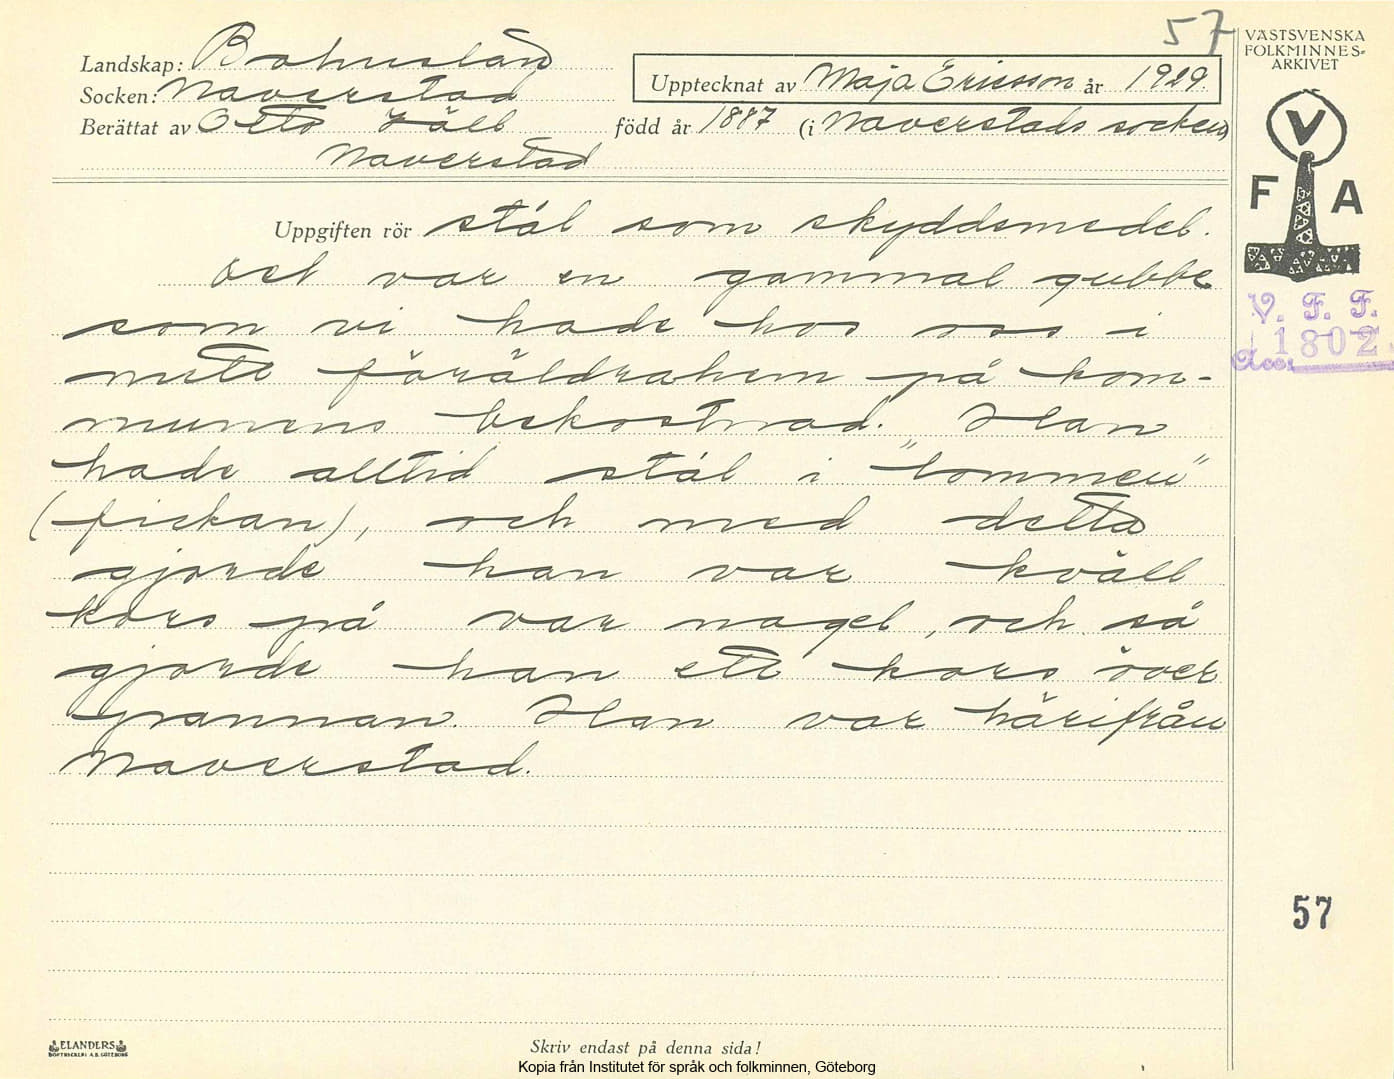 57
Landskap: Bohuslän
Socken: Naverstad
Upptecknat av Maja Ericsson år 1929.
Berättat av Otto Häll född år 1887 (i Naverstads socken)
Naverstad
VÄSTSVENSKA
FOLKMINNES-
ARKIVET
V
F A
V. F. F.
Acc. 1802
Uppgiften rör stål som skyddsmedel.
Det var en gammal gubbe
som vi hade hos oss i
mitt föräldrahem på kom-
munens bekostnad. Han
hade alltid stål i "lommen"
(fickan), och med detta
gjorde han var kväll
kors på var nagel, och så
gjorde han ett kors över
pannan. Han var härifrån
Naverstad.
57
ELANDERS
BOKTRYCKERI A.B. GÖTEBORG
Skriv endast på denna sida!
Kopia från Institutet för språk och folkminnen, Göteborg